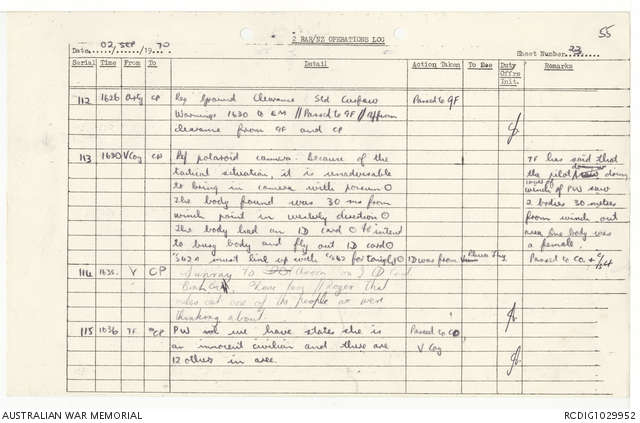 55
2 RAR/NZ OPERATIONS LOG
Date 02/SEP/1970
Sheet Number 22
Serial Time From To Detail Action Taken To See Duty Offrs Init. Remarks
112 1626 Arty CP Req Ground Clearance Std Curfew Passed to GF
Warnings 1630 to EM // Passed to GF // Affirm
clearance from GF and CP
113 1630 V Coy CP Ref polaroid camera. Because of the 7F has said that
tactical situation, it is inadvisable the pilot doing
to bring in camera with person O winch of PW saw
The body found was 30 ms from 2 bodies 30 meters
winch point in westerly direction O from winch out
The body had an ID card O to intend area one body was
to bury body and fly out ID card O a female.
must line up with for tonight O ID was from Passed to CO
114 V CP Sunray to on ID card
// roger that
rules out one of the people we were
thinking about.
115 1636 7F CP PW states she is Passed to CO,
an innocent civilian and there are V Coy
12 others in area.
AUSTRALIAN WAR MEMORIAL
RCDIG1029952